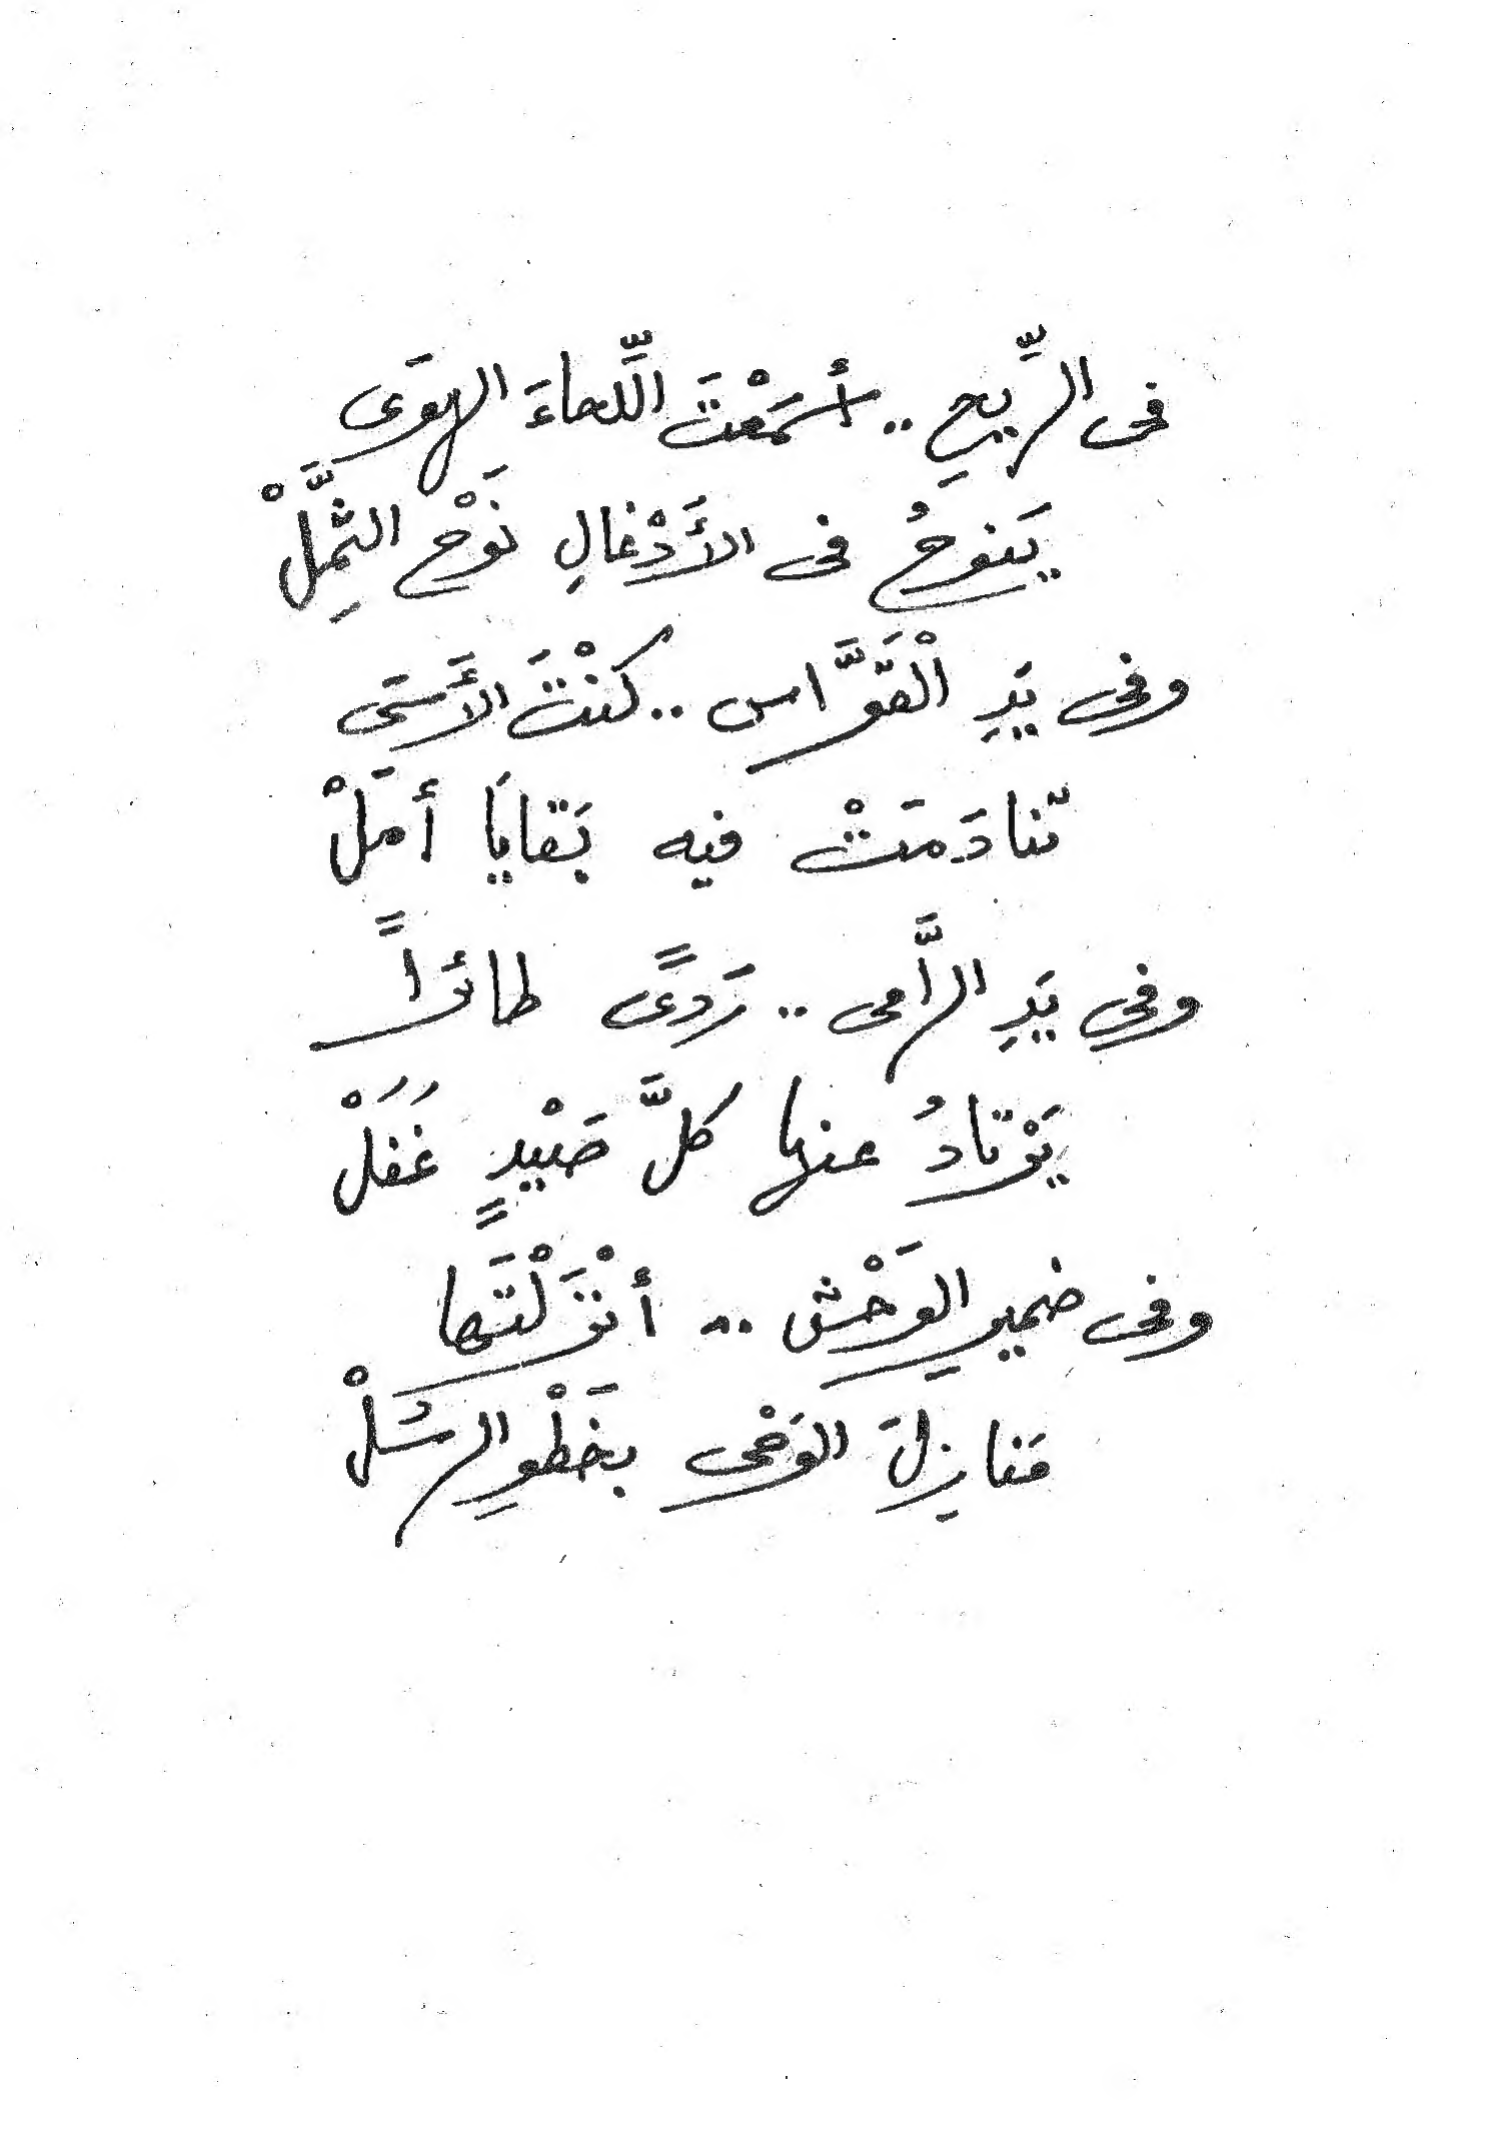 فى الرِّيحِ .. أسْمَعْتَ اللِّحاءَ الهوَى
يَنوحُ فى الأَدْغالِ نَوْحَ الثَّمِلْ
وفى يَدِ الْقَوَّاس .. كنْتَ الأَسَى
تنادَمَتْ فيه بَقايَا أمَلْ
وفى يَدِ الرَّامى .. رَدًى طائرًا
يَرْتادُ عنها كلَّ صَيْدٍ غَفَلْ
وفى ضمير الوَحْش .. أنْزَلْتَها
مَنازِلَ الوَحْى بخَطْوِ الرسُلْ